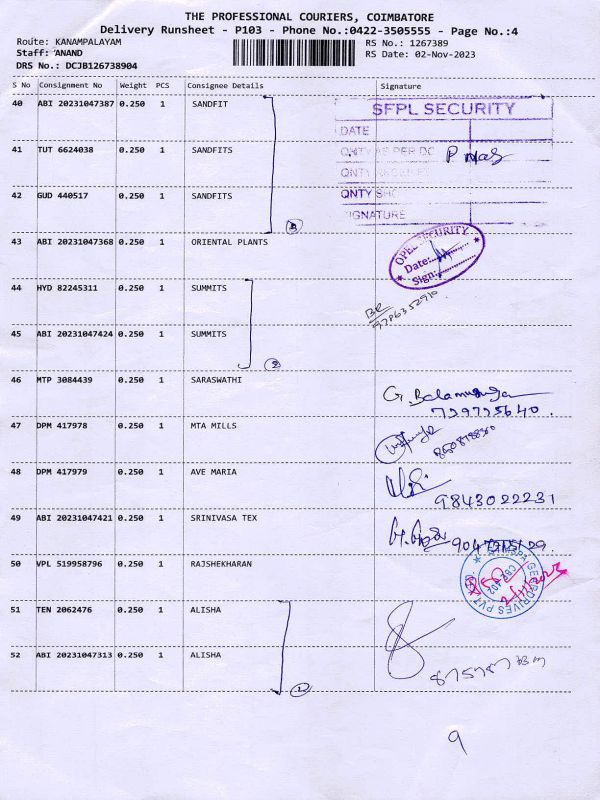 THE PROFESSIONAL COURIERS, COIMBATORE
Delivery Runsheet - P103 - Phone No.:0422-3505555 - Page No.:4
Route: KANAMPALAYAM
RS No.: 1267389
Staff: ANAND
RS Date: 02-Nov-2023
DRS No.: DCJB126738904
S No Consignment No Weight PCS Consignee Details Signature
40 ABI 20231047387 0.250 1 SANDFIT
SFPL SECURITY
DATE
41 TUT 6624038 0.250 1 SANDFITS
QNTY AS PER DC
QNTY
42 GUD 440517 0.250 1 SANDFITS
QNTY
SIGNATURE
43 ABI 20231047368 0.250 1 ORIENTAL PLANTS
OPEL SECURITY
Date:
Sign:
44 HYD 82245311 0.250 1 SUMMITS
9786352910
45 ABI 20231047424 0.250 1 SUMMITS
2
46 MTP 3084439 0.250 1 SARASWATHI
47 DPM 417978 0.250 1 MTA MILLS
48 DPM 417979 0.250 1 AVE MARIA
9843022231
49 ABI 20231047421 0.250 1 SRINIVASA TEX
50 VPL 519958796 0.250 1 RAJSHEKHARAN
CBE 402
2/11/2023
51 TEN 2062476 0.250 1 ALISHA
52 ABI 20231047313 0.250 1 ALISHA
9